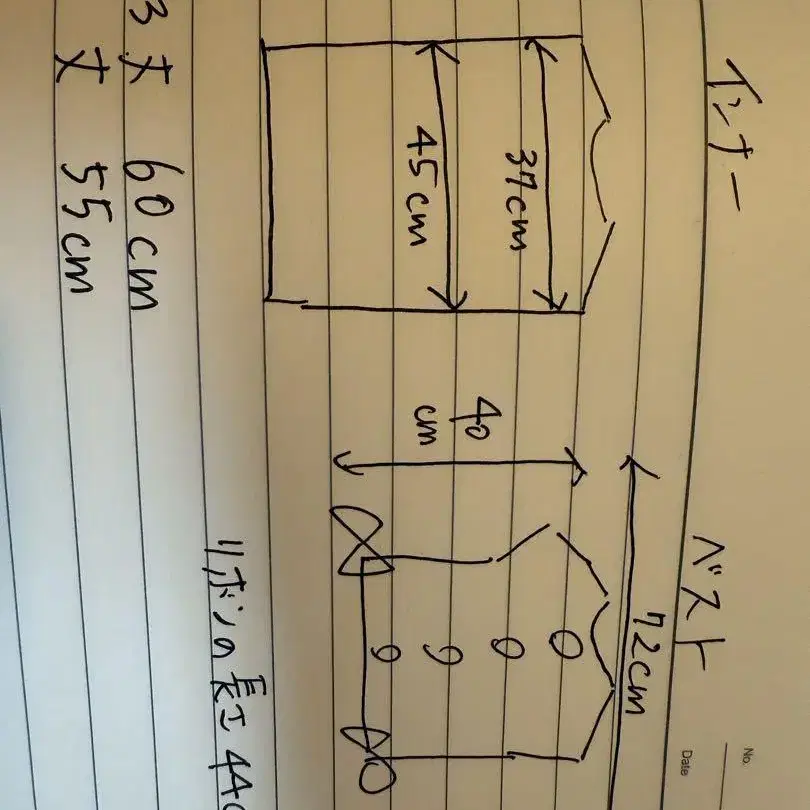 インナー
ベスト
No.
Date
72cm
37cm
45cm
40
cm
丈 60cm
丈 55cm
リボンの長さ 44c